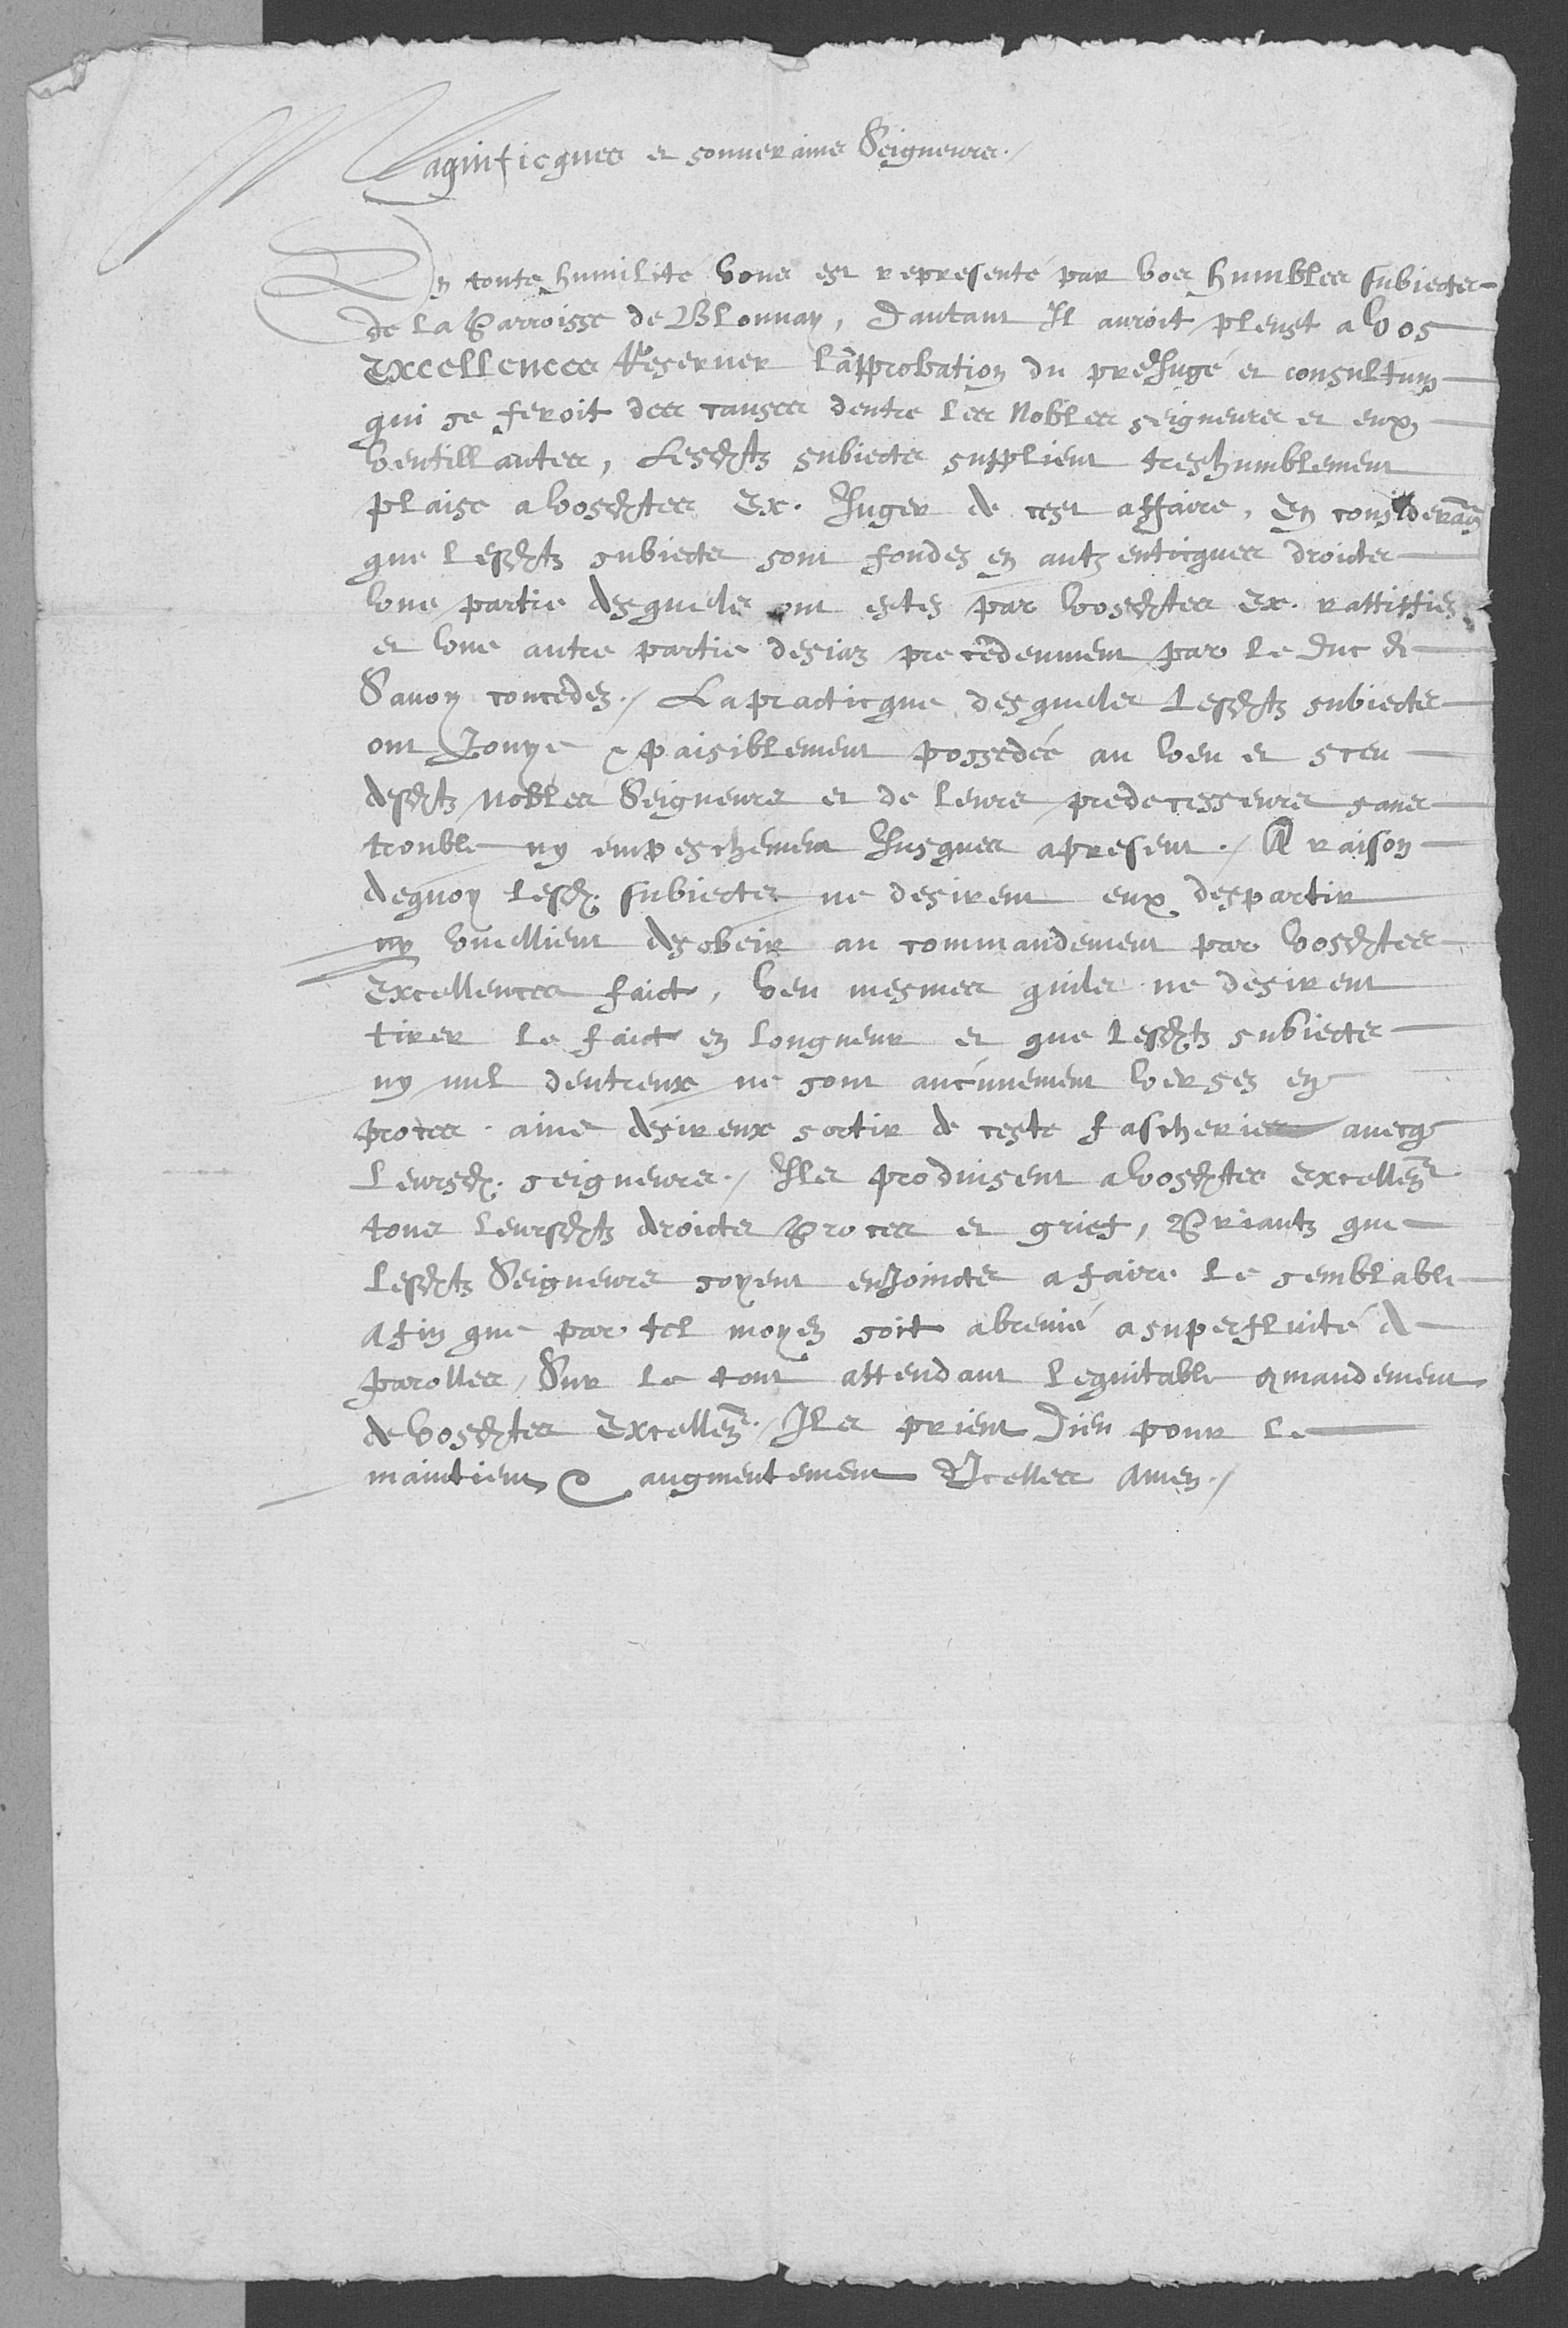 Magnificques et souverains Seigneurs./
En toute humilité vous est representé par vos humbles subiects
de la Parroisse de Blonnay, Dautant Il auroit pleust a vos
Excellences Reserver lapprobation du preJugé et consultum
qui se feroit des causes dentre les Nobles seigneurs et eux
ventillantes, Lesdts subiects supplient treshumblement
plaise a vosdtes Ex. Juger de cest affaire, En considerāt
que lesdts subiects sont fondez en autzenticques droicts
vne partie desquels ont estes par vosdtes Ex. rattiffiez
et vne autre partie desiaz precedemment par le Duc de
Savoy concedez./ La practicque desquels lesdts subiects
ont Jouye & paisiblement possedée au veu et sceu
desdts Nobles Seigneurs et de leurs predecesseurs sans
trouble ny empeschement Jusques apresent./ A raison
dequoy lesd. subiects ne desirent eux despartir
ny vueillent desobeir au commandement par vosdtes
Excellences faict, veu mesmes quils ne desirent
tirer le faict en longueur et que lesdts subiects
ny nul dentreux ne sont aucunement versez en
proces. ains desireux sortir de ceste fascherie avecq
leursd. seigneurs./ Ils produisent a vosdtes Excellen.
tous leursdts droicts Proces et grief, Priantz que
lesdts Seigneurs soyent enJoincts a faire le semblable
afin que par tel moyen soit abrevié a superfluité de
parolles, Sur le tout attendant lequitable 9mandement
de vosdtes Excellen./ Ils prient Dieu pour le
maintient & augmentement dIcelles Amen./